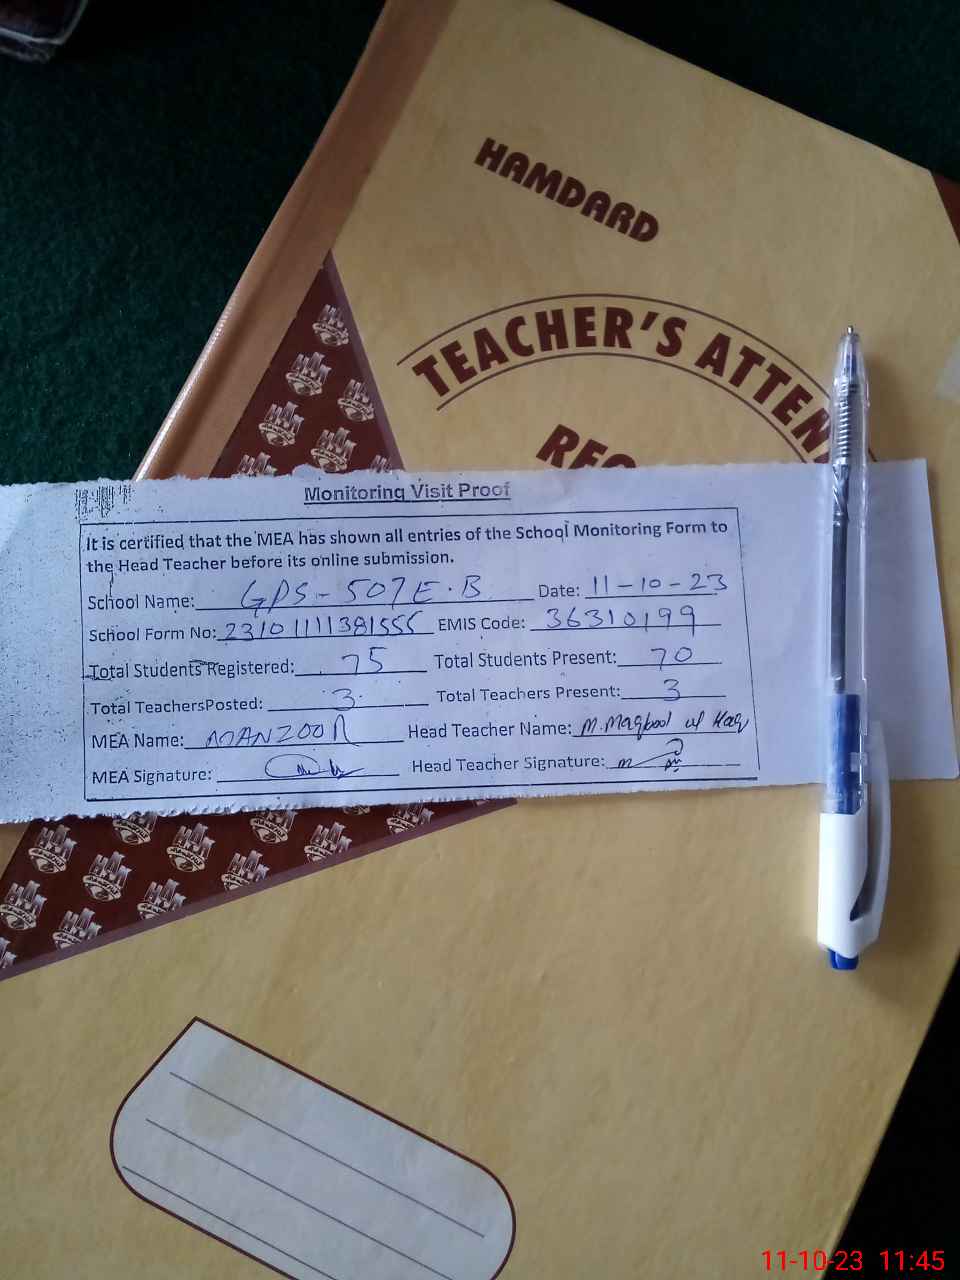 HAMDARD
TEACHER'S ATTEN
REG
Monitoring Visit Proof
It is certified that the MEA has shown all entries of the School Monitoring Form to
the Head Teacher before its online submission.
School Name: GPS-507E.B Date: 11-10-23
School Form No: 23101111381555 EMIS Code: 36310199
Total Students Registered: 75 Total Students Present: 70
Total TeachersPosted: 3 Total Teachers Present: 3
MEA Name: MANZOOR Head Teacher Name: M.Maqbool ul Haq
MEA Signature: Head Teacher Signature:
11-10-23 11:45